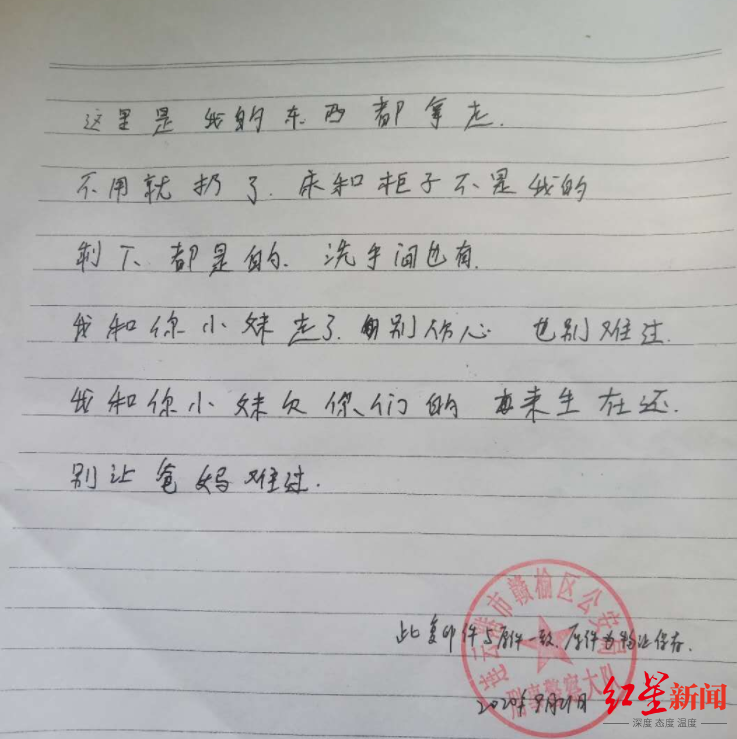 这里是我的东西都拿走.
不用就扔了.床和柜子不是我的
剩下都是的.洗手间也有.
我和你小妹走了.别伤心 也别难过.
我和你小妹欠你们的 来生在还.
别让爸妈难过.
连云港市赣榆区公安局
此复印件与原件一致.原件为物证保存.
刑事警察大队
2020年9月21日
红星新闻
深度 态度 温度